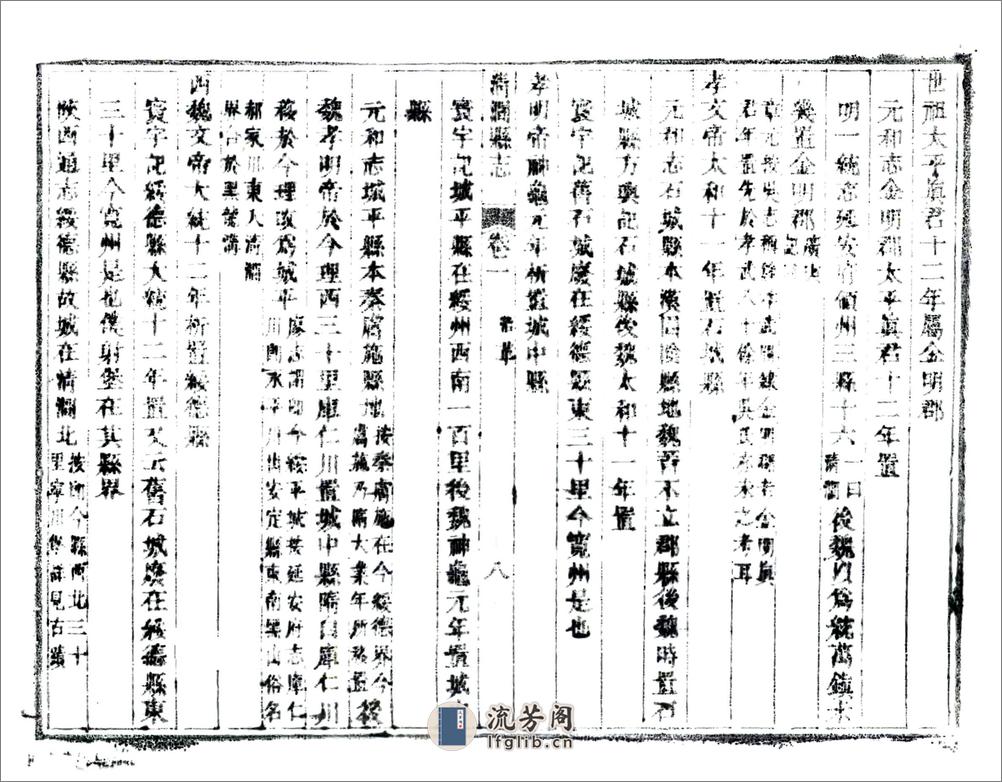 世祖太平眞君十二年屬金明郡
元和志金明郡太平眞君十二年置
明一統志延安府領州三縣十六一曰清澗後魏以爲統萬鎮
幾置金明郡
孝文帝太和十一年置石城縣
元和志石城縣本漢圁陰縣地魏晉不立郡縣後魏時置石
城縣方輿記石城縣後魏太和十一年置
寰宇記舊石城廢在綏德縣東三十里今寬州是也
孝明帝神龜元年析置城中縣
清澗縣志
卷一
沿革
八
寰宇記城平縣在綏州西南一百里後魏神龜元年置城中
縣
元和志城平縣本秦膚施縣地按秦膚施在今綏德界今
膚施乃隋大業年所營置後
魏孝明帝於今理西三十里庫仁川置城中縣隋自庫仁川
移於今理改爲城平廖志謂即今綏平城按延安府志庫仁
川即水平川出安定縣東南黑山俗名
郝家川東入清澗
界合於黑龍溝
西魏文帝大統十二年析置綏德縣
寰宇記綏德縣大統十二年置又云舊石城廢在綏德縣東
三十里今寬州是也僕射堡在其縣界
陝西通志綏德縣故城在清澗北按即今縣西北三十
里 見古蹟
流芳阁
lfglib.cn